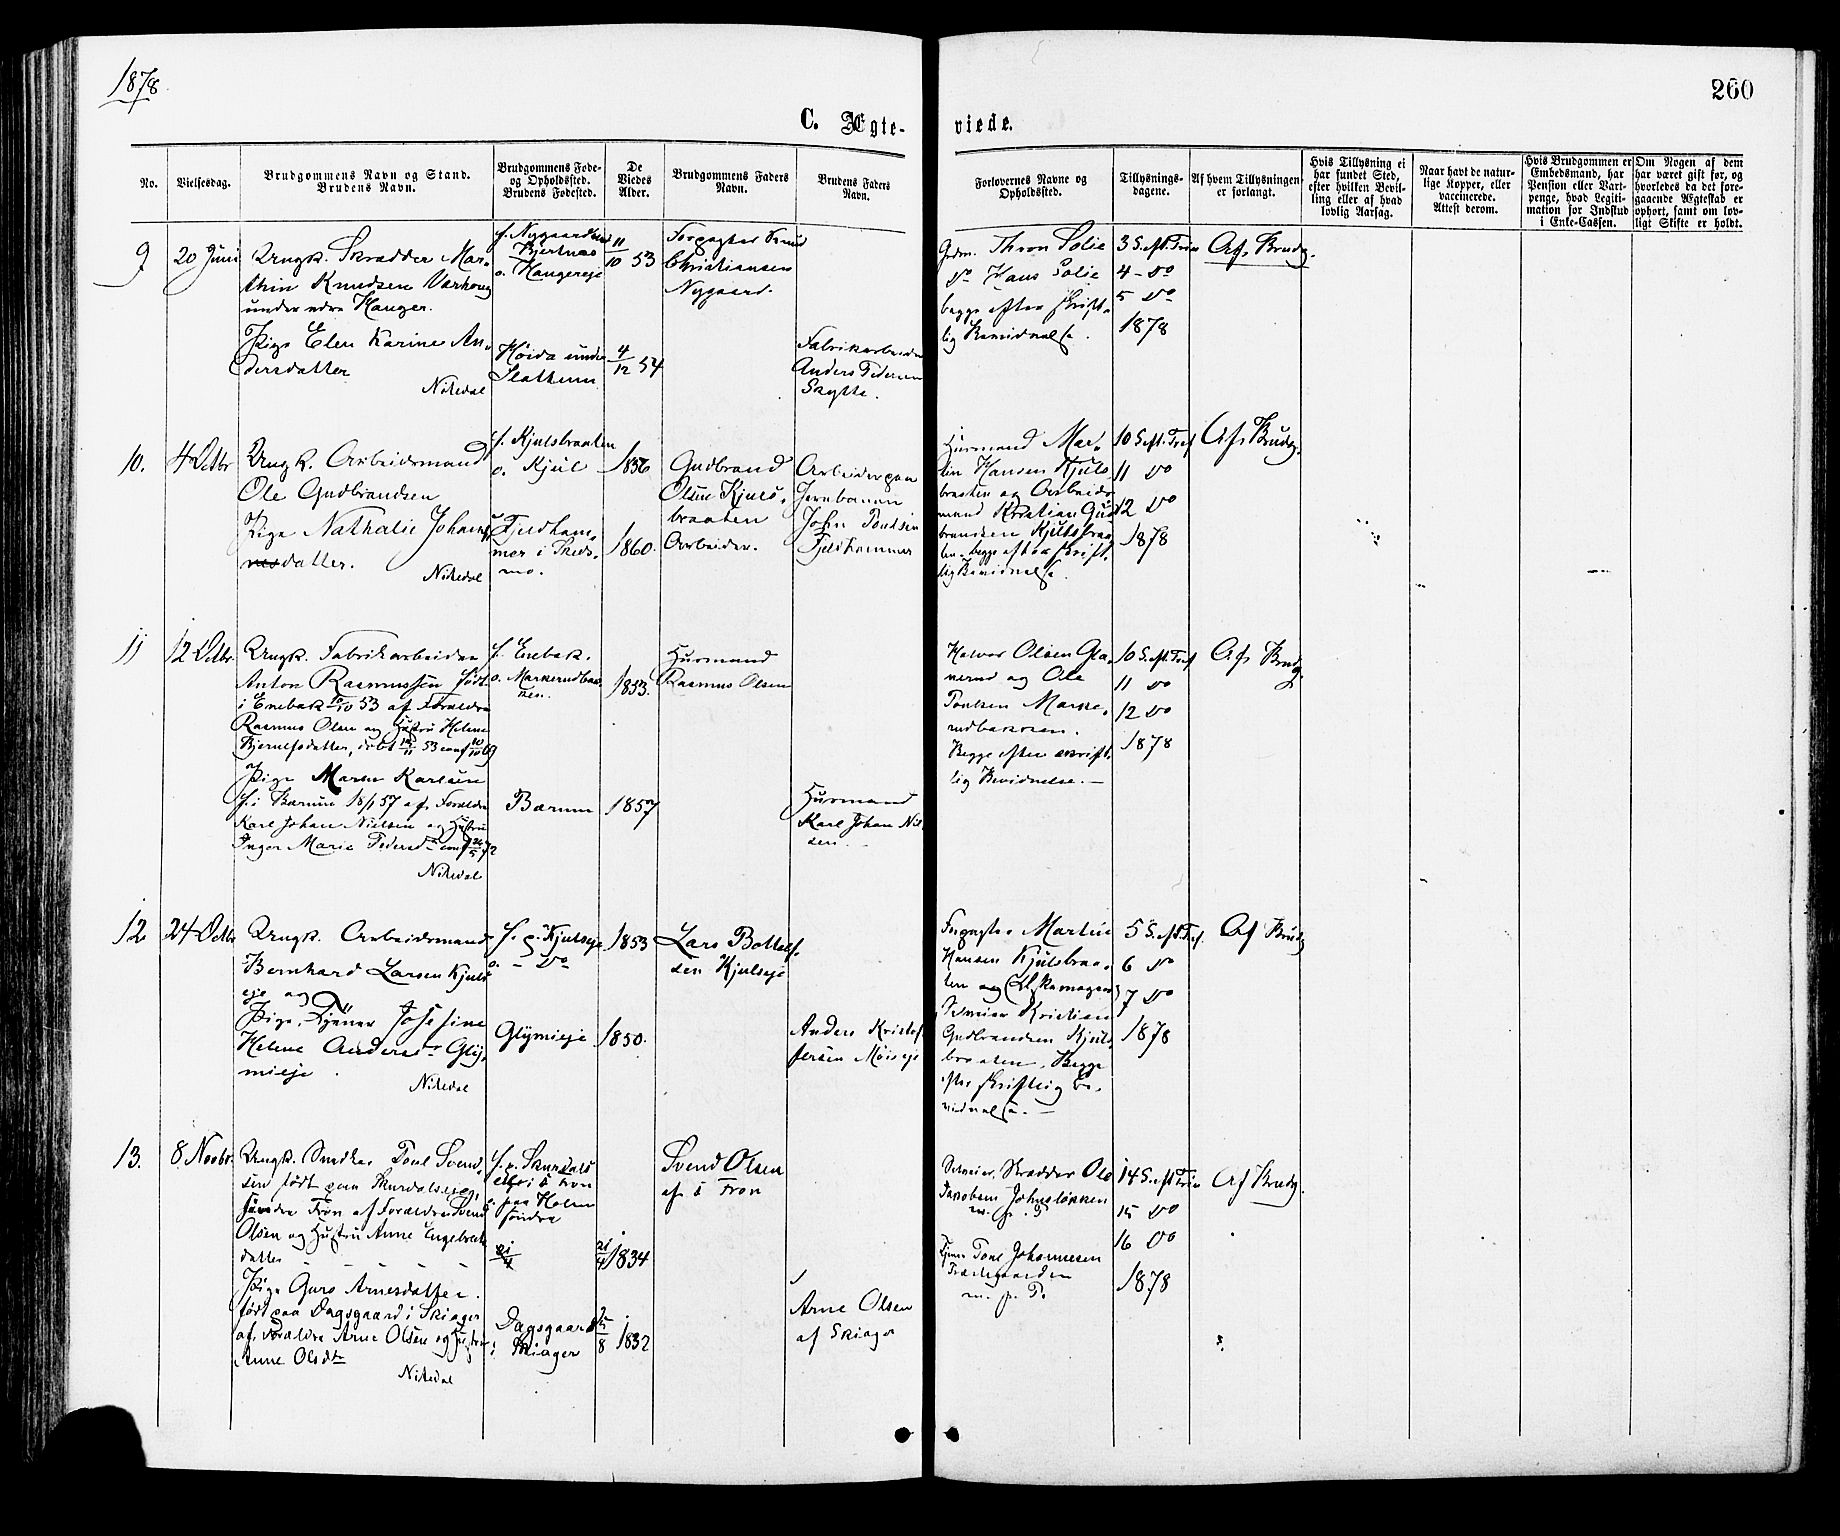 1878.
260
C. Ægte-
viede.
No.
Vielsesdag.
Brudgommens Navn og Stand.
Brudens Navn.
Brudgommens Føde-
og Opholdssted.
Brudens Fødested.
De
Viedes
Alder.
Brudgommens Faders
Navn.
Brudens Faders
Navn.
Forlovernes Navne og
Opholdssted.
Tillysnings-
dagene.
Af hvem Tillysningen
er forlangt.
Hvis Tillysning ei
har fundet Sted,
efter hvilken Bevil-
ling eller af hvad
lovlig Aarsag.
Naar havt de natur-
lige Kopper, eller
vaccinerede.
Attest derom.
Hvis Brudgommen er
Embedsmand, har
Pension eller Vart-
penge, hvad Legiti-
mation for Indskud
i Enke-Cassen.
Om Nogen af dem
har været gift før, og
hvorledes da det fore-
gaaende Ægteskab er
ophørt, samt om lov-
ligt Skifte er holdt.
9
20 Juni
Ungk. Skrædder Mar-
thin Knudsen Varhoug
under Hauger.
Pige Elen Karine An-
dersdatter
Nitedal
f. Nygaard
o. Haugereje
Høida under
Slathum
11/10 53
4/12 54
Forpagter Knud
Christiansen
Nygaard.
Fabrikarbeider
Anders Pedersen
Skytte.
Grdm. Thron Solie
do Hans Solie
begge efter skrift-
lig Bevidnelse.
3 S. eft. Trin
4 - do
5 do
1878
Af Brudg.
10.
4 Octbr
Ungk. Arbeidsmand
Ole Gudbrandsen
Pige Nathalie Johans-
datter.
Nitedal
f. Kjulsbraaten
o. Kjul
Fjeldham-
mer i Skeds-
mo.
1856
1860.
Gudbrand
Olsen Kjuls-
braaten
Arbeider.
Arbeider paa
Jernbanen
John Poulsen
Fjeldhammer
Husmand Mar-
tin Hansen Kjuls-
braaten og Arbeids-
mand Kristian Gud-
brandsen Kjulsbraa-
ten. begge efter skrift-
lig Bevidnelse.
10 S. eft. Tref
11 do
12 do
1878
Af Brudg.
11
12 Octbr.
Ungk. Fabrikarbeider
Anton Rasmussen født
i Enebak 53 af Forældre
Rasmus Olsen og Hustru Helene
døbt 53 conf 69
Pige Maren Karlsen
f. i Bærum 18/1 57 af Forældre
Karl Johan Nielsen og Hustru
Inger Marie Pedersd. conf 72
Nitedal
f. Enebak.
o. Markerudbak-
ken.
Bærum
1853.
1857
Husmand
Rasmus Olsen
Husmand
Karl Johan Niel-
sen.
Halvor Olsen Gla-
nerud og Ole
Poulsen Marke-
rudbakken.
Begge efter skrift-
lig Bevidnelse.
10 S. eft. Tref
11 do
12 do
1878
Af Brudg.
12
24 Octbr
Ungk. Arbeidsmand
Bernhard Larsen Kjuls-
eje og
Pige, Tjener Josefine
Helene Andersdtr Gløt-
mieje.
Nitedal
f. p. Kjulseje
o. - do
1853
1850.
Lars Bottolf-
sen Kjulseje
Anders Kristof-
fersen
Martin
Hansen Kjulsbraa-
ten og
Kristian
Gudbrandsen Kjuls-
braaten. Begge
efter skriftlig Be-
vidnelse.
5 S. eft. Tref.
6 do
7 do
1878
Af Brudg
13.
8 Novbr.
Ungk. Snedker Poul Svend-
sen født paa
søndre Fron af Forældre Svend
Olsen og Hustru Anne Engebrets-
datter
Pige Guro Arnesdatter.
født paa Dagsgaard i Skiager
af Forældre Arne Olsen og Hustru
Anne Olsdtr
Nitedal
i S Fron
paa Holm
søndre
21/4
Dagsgaard
i Skiager
21/4 1834
1832
Svend Olsen
af S Fron
Arne Olsen
af Skiager
Skrædder Ole
Jakobsen Johnsløkken
m. p. P
Poul Johannesen
m. p. P.
14 S. eft. Trin
15 do
16 do
1878
Af Brudg.